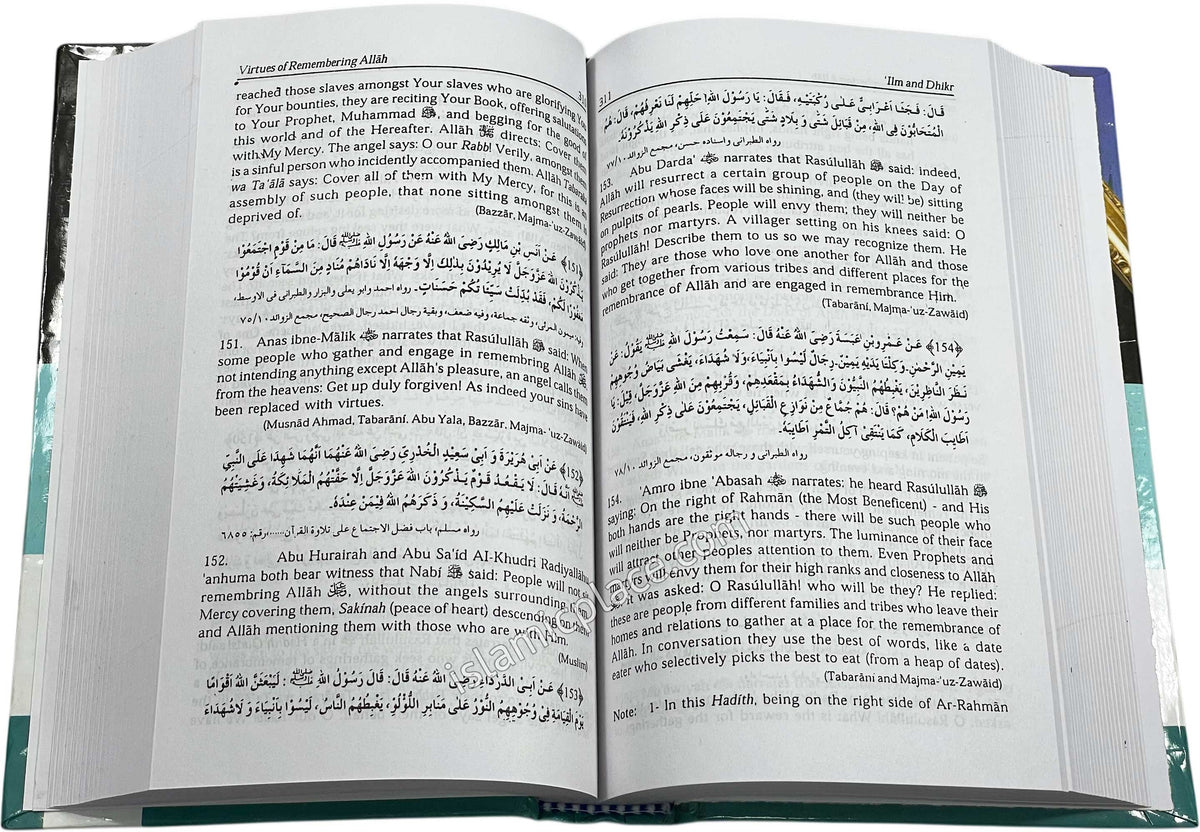 Virtues of Remembering Allāh
reached those slaves amongst Your slaves who are glorifying You
for Your bounties, they are reciting Your Book, offering salutations
to Your Prophet, Muhammad ﷺ, and begging for the good of
this world and of the Hereafter. Allāh directs: Cover them
with My Mercy. The angel says: O our Rabb! Verily, amongst them
is a sinful person who incidently accompanied them. Allāh Tabaraka
wa Ta'ālā says: Cover all of them with My Mercy, for this is an
assembly of such people, that none sitting amongst them is
deprived of.
(Bazzār, Majma-'uz-Zawāid)
﴿151﴾ عَنْ اَنَسِ بْنِ مَالِكٍ رَضِىَ اللهُ عَنْهُ عَنْ رَسُوْلِ اللهِ ﷺ قَالَ: مَا مِنْ قَوْمٍ اجْتَمَعُوْا
يَذْكُرُوْنَ اللهَ عَزَّوَجَلَّ لَا يُرِيْدُوْنَ بِذٰلِكَ اِلَّا وَجْهَهُ اِلَّا نَادَاهُمْ مُنَادٍ مِنَ السَّمَآءِ اَنْ قُوْمُوْا
مَغْفُوْرًا لَكُمْ، فَقَدْ بُدِلَتْ سَيِّئَاتُكُمْ حَسَنَاتٍ. رواه احمد وابو يعلى والبزار والطبرانى فى الاوسط،
وفيه ميمون المرئى، وثقه جماعة، وفيه ضعف، وبقية رجال احمد رجال الصحيح، مجمع الزوائد ١٠/٧٥
151. Anas ibne-Mālik narrates that Rasūlullāh ﷺ said: When
some people who gather and engage in remembring Allāh
not intending anything except Allāh's pleasure, an angel calls them
from the heavens: Get up duly forgiven! As indeed your sins have
been replaced with virtues.
(Musnād Ahmad, Tabarānī. Abu Yala, Bazzār. Majma-'uz-Zawāid)
﴿152﴾ عَنْ اَبِىْ هُرَيْرَةَ وَ اَبِىْ سَعِيْدٍ الْخُدْرِيِّ رَضِىَ اللهُ عَنْهُمَا اَنَّهُمَا شَهِدَا عَلَى النَّبِيِّ
ﷺ اَنَّهُ قَالَ: لَا يَقْعُدُ قَوْمٌ يَذْكُرُوْنَ اللهَ عَزَّوَجَلَّ اِلَّا حَفَّتْهُمُ الْمَلَائِكَةُ، وَغَشِيَتْهُمُ
الرَّحْمَةُ، وَ نَزَلَتْ عَلَيْهِمُ السَّكِيْنَةُ، وَ ذَكَرَهُمُ اللهُ فِيْمَنْ عِنْدَهُ.
رواه مسلم، باب فضل الاجتماع على تلاوة القرآن.....،رقم: ٦٨٥٥
152. Abu Hurairah and Abu Sa'īd Al-Khudri Radiyallāhu
'anhuma both bear witness that Nabī ﷺ said: People will not sit
remembering Allāh, without the angels surrounding them,
Mercy covering them, Sakīnah (peace of heart) descending on them
and Allāh mentioning them with those who are with Him.
(Muslim)
﴿153﴾ عَنْ اَبِى الدَّرْدَاءِ رَضِىَ اللهُ عَنْهُ قَالَ: قَالَ رَسُوْلُ اللهِ ﷺ: لَيَبْعَثَنَّ اللهُ اَقْوَامًا
يَوْمَ الْقِيَامَةِ فِىْ وُجُوْهِهِمُ النُّوْرُ عَلٰى مَنَابِرِ اللُّؤْلُؤِ، يَغْبِطُهُمُ النَّاسُ، لَيْسُوْا بِاَنْبِيَاءَ وَ لَاشُهَدَاءَ
311 'Ilm and Dhikr
قَالَ: فَجَثَا اَعْرَابِىٌّ عَلٰى رُكْبَتَيْهِ، فَقَالَ: يَا رَسُوْلَ اللهِ! حَلِّهِمْ لَنَا نَعْرِفْهُمْ، قَالَ: هُمُ
الْمُتَحَابُّوْنَ فِى اللهِ، مِنْ قَبَائِلَ شَتّٰى وَ بِلَادٍ شَتّٰى يَجْتَمِعُوْنَ عَلٰى ذِكْرِ اللهِ يَذْكُرُوْنَهُ.
رواه الطبرانى واسناده حسن، مجمع الزوائد ١٠/٧٧
153. Abu Darda' narrates that Rasúlullāh ﷺ said: indeed,
Allāh will resurrect a certain group of people on the Day of
Resurrection whose faces will be shining, and (they will be) sitting
on pulpits of pearls. People will envy them; they will neither be
prophets nor martyrs. A villager setting on his knees said: O
Rasūlullāh! Describe them to us so we may recognize them. He
said: They are those who love one another for Allāh and those
who get together from various tribes and different places for the
remembrance of Allāh and are engaged in remembrance Him.
(Tabarānī, Majma-'uz-Zawāid)
﴿154﴾ عَنْ عَمْرِوبْنِ عَبَسَةَ رَضِىَ اللهُ عَنْهُ قَالَ: سَمِعْتُ رَسُوْلَ اللهِ ﷺ يَقُوْلُ: عَنْ
يَمِيْنِ الرَّحْمٰنِ، وَكِلْتَا يَدَيْهِ يَمِيْنٌ، رِجَالٌ لَيْسُوْا بِاَنْبِيَاءَ،وَلَا شُهَدَاءَ، يَغْشٰى بَيَاضُ وُجُوْهِهِمْ
نَظَرَ النَّاظِرِيْنَ، يَغْبِطُهُمُ النَّبِيُّوْنَ وَالشُّهَدَاءُ بِمَقْعَدِهِمْ، وَقُرْبِهِمْ مِنَ اللهِ عَزَّوَجَلَّ، قِيْلَ: يَا
رَسُوْلَ اللهِ! مَنْ هُمْ؟ قَالَ: هُمْ جُمَّاعٌ مِنْ نَوَازِعِ الْقَبَائِلِ، يَجْتَمِعُوْنَ عَلٰى ذِكْرِ اللهِ، فَيَنْتَقُوْنَ
اَطَايِبَ الْكَلَامِ، كَمَا يَنْتَقِىْ آكِلُ التَّمْرِ اَطَايِبَهُ.
رواه الطبرانى و رجاله موثقون، مجمع الزوائد ١٠/٧٨
154. 'Amro ibne 'Abasah narrates: he heard Rasúlullāh ﷺ
saying: On the right of Rahmān (the Most Beneficent) - and His
both hands are the right hands - there will be such people who
will neither be Prophets, nor martyrs. The luminance of their face
will attract other peoples attention to them. Even Prophets and
martyrs will envy them for their high ranks and closeness to Allāh
. it was asked: O Rasúlullāh! who will be they? He replied:
these are people from different families and tribes who leave their
homes and relations to gather at a place for the remembrance of
Allāh. In conversation they use the best of words, like a date
eater who selectively picks the best to eat (from a heap of dates).
(Tabarānī and Majma-'uz-Zawāid)
Note: 1- In this Hadīth, being on the right side of Ar-Rahmān
islamicplace.com